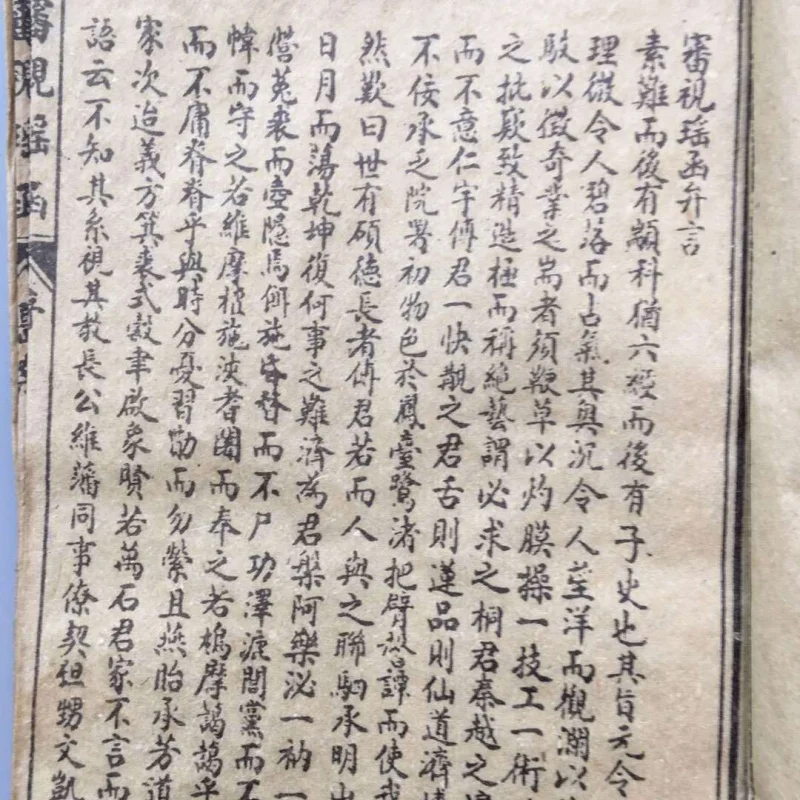 審視瑤函弁言
素難而後有顓科猶六經而後有子史也其旨元令
理微令人碧落而占氣其輿沉令人茫洋而觀瀾以
駮以徵奇業之耑者須鞭草以灼膜操一技工一術
之抵欵致精造極而稱絕藝謂必求之桐君秦越之
而不意仁宇傅君一快覩之君舌則蓮品則仙道濟
不佞承乏院署初物色於鳳臺鷺渚把臂放譚而使我
然歎曰世有碩德長者傅君若而人與之聯駟承明出
日月而蕩乾坤復何事之難濟為君槃阿樂泌一衲一
營菟裘而壺隱焉餌施昏瞀而不尸功澤漉閭黨而不
幃而守之若維摩禮施浹者闔而奉之若鶴摩藹藹乎
而不庸脊脊乎與時分憂習勩而勿縈且燕胎承芳道
家次迨義方箕裘式穀聿啟象賢若萬石君家不言而
語云不知其系視其教長公維藩同事僚契姪甥文凱
審視瑤函
序